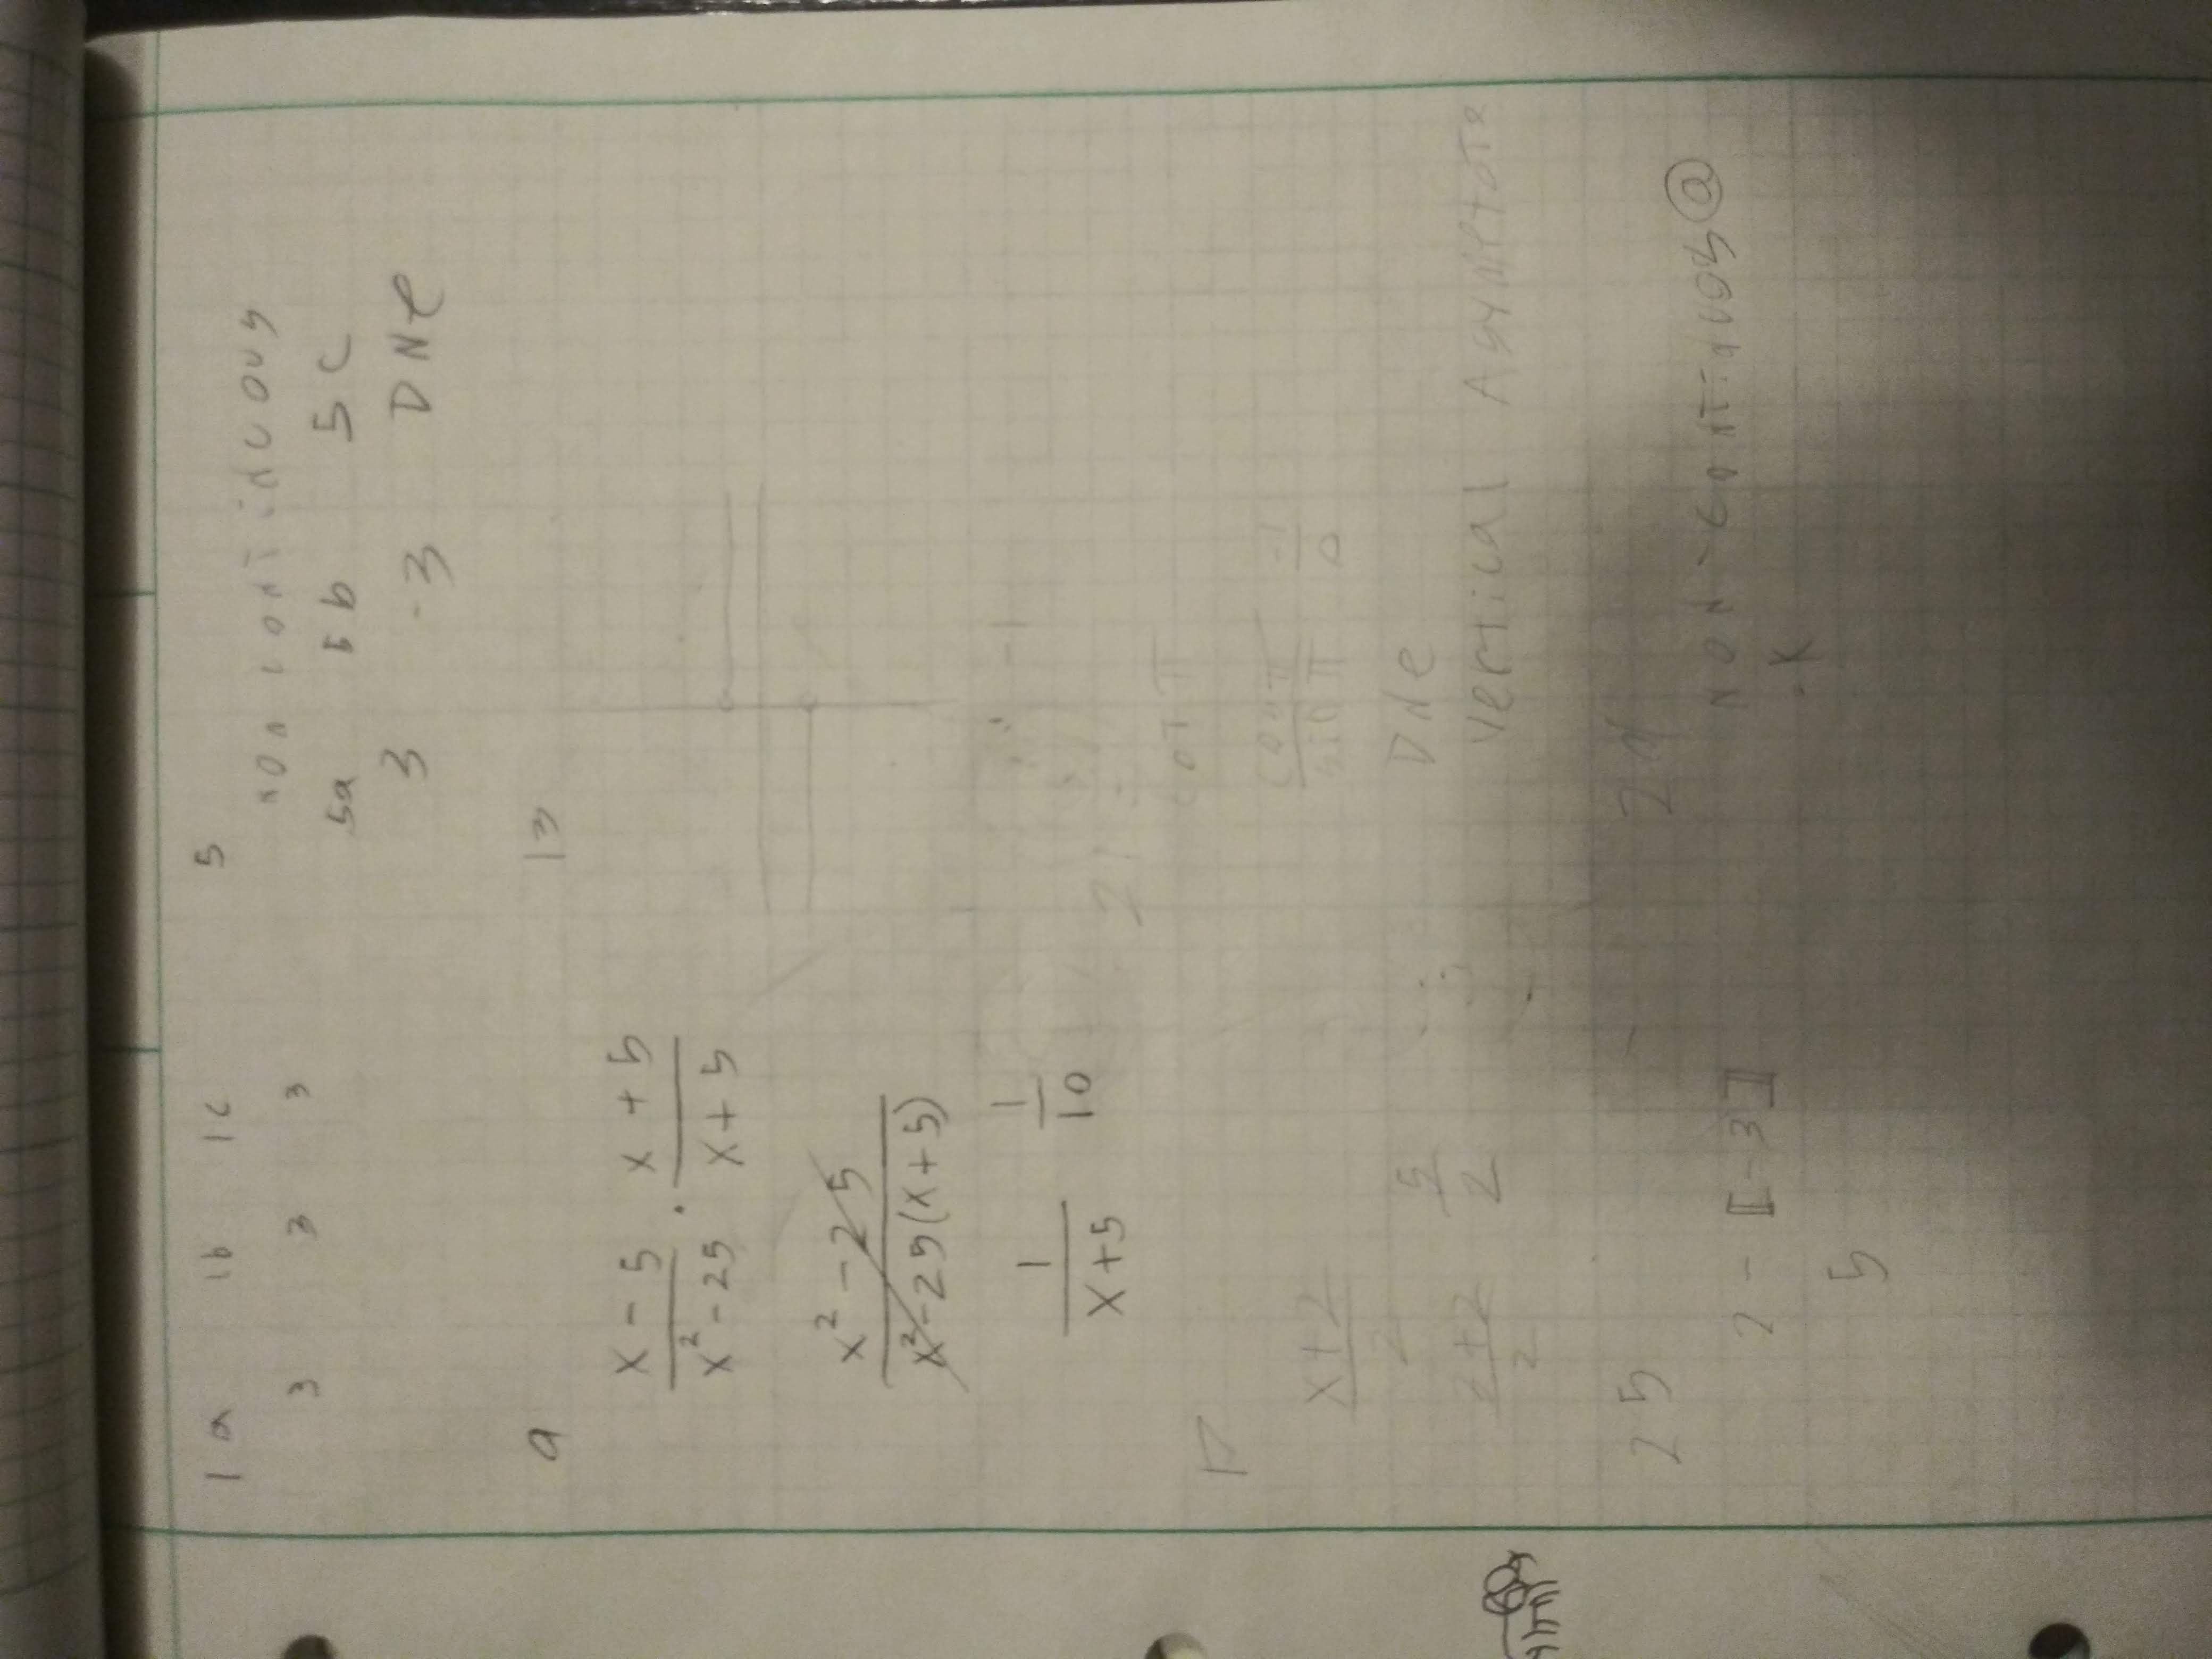 1a 1b 1c 5
3 3 3 non continuous
5a 5b 5c
3 -3 DNe
9 13
x-5/x²-25 · x+5/x+5
x²-25/x²-25(x+5)
1/x+5 1/10
-1
17 21
cot π
x+2/2 cos π/sin π -1/0
2+2/2 5/2 DNe
Vertical Asymptote
25
2-⟦-3⟧ Non-continuous @
5 ·K